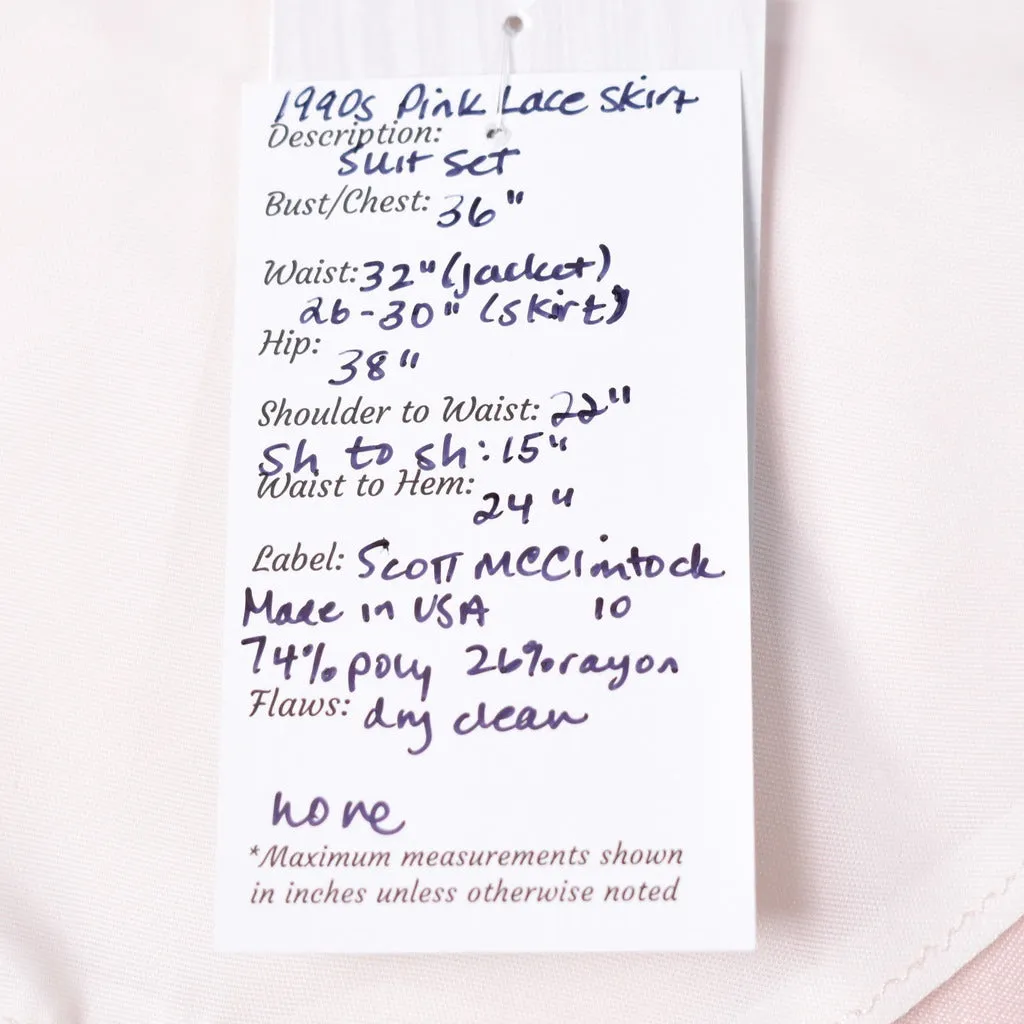 1990s Pink Lace Skirt
Description:
Suit Set
Bust/Chest: 36"
Waist: 32" (jacket)
26-30" (skirt)
Hip: 38"
Shoulder to Waist: 22"
Sh to sh: 15"
Waist to Hem: 24"
Label: Scott McClintock
Made in USA 10
74% poly 26% rayon
Flaws: dry clean
none
*Maximum measurements shown
in inches unless otherwise noted